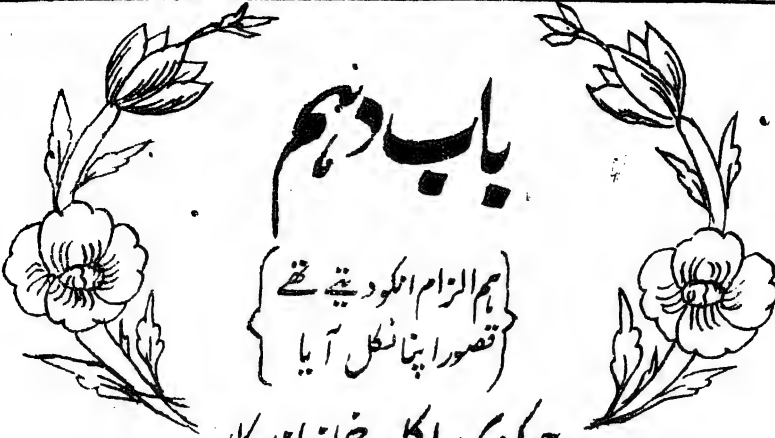 باب دہم
ہم الزام انکو دیتے تھے
قصور اپنا نکل آیا